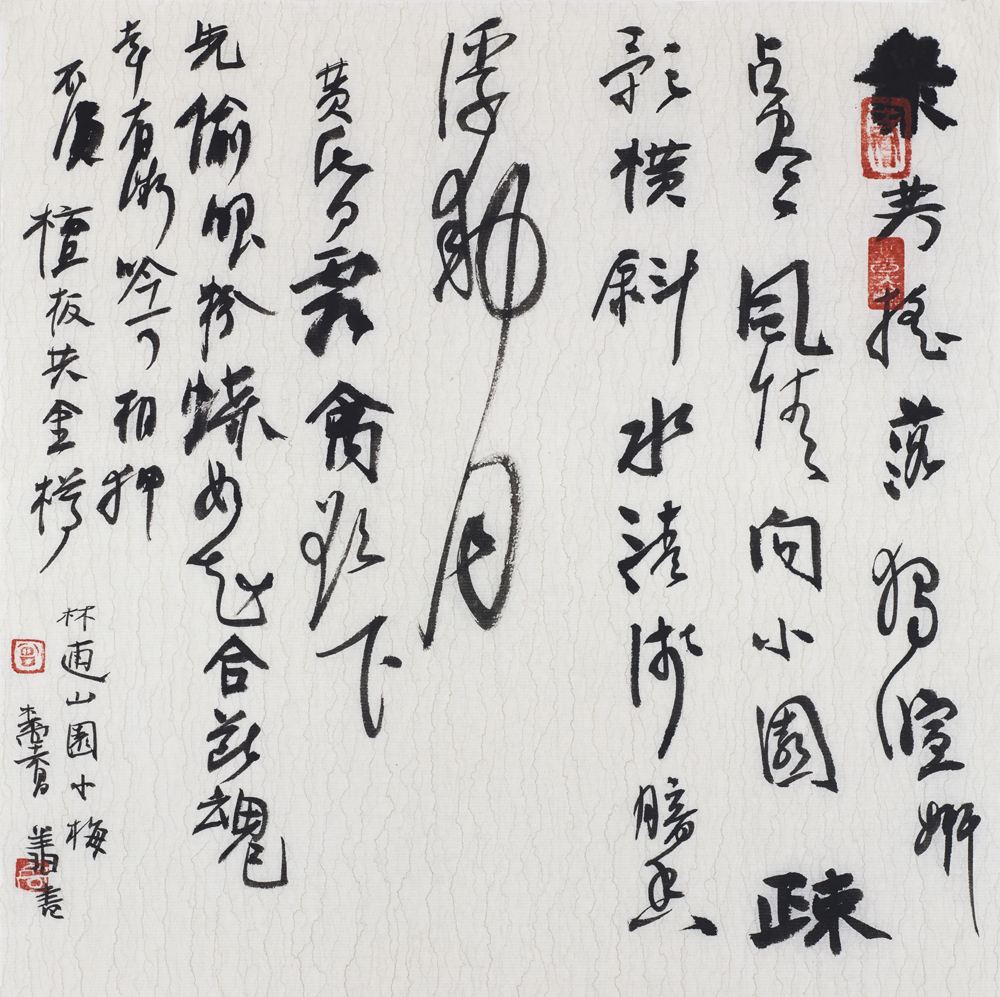 衆芳搖落獨暄妍
占盡風情向小園疎
影橫斜水清淺暗香
浮動月
黄昏霜禽欲下
先偷眼粉蝶如知合斷魂
幸有微吟可相狎
不須檀板共金樽
林逋山園小梅
書